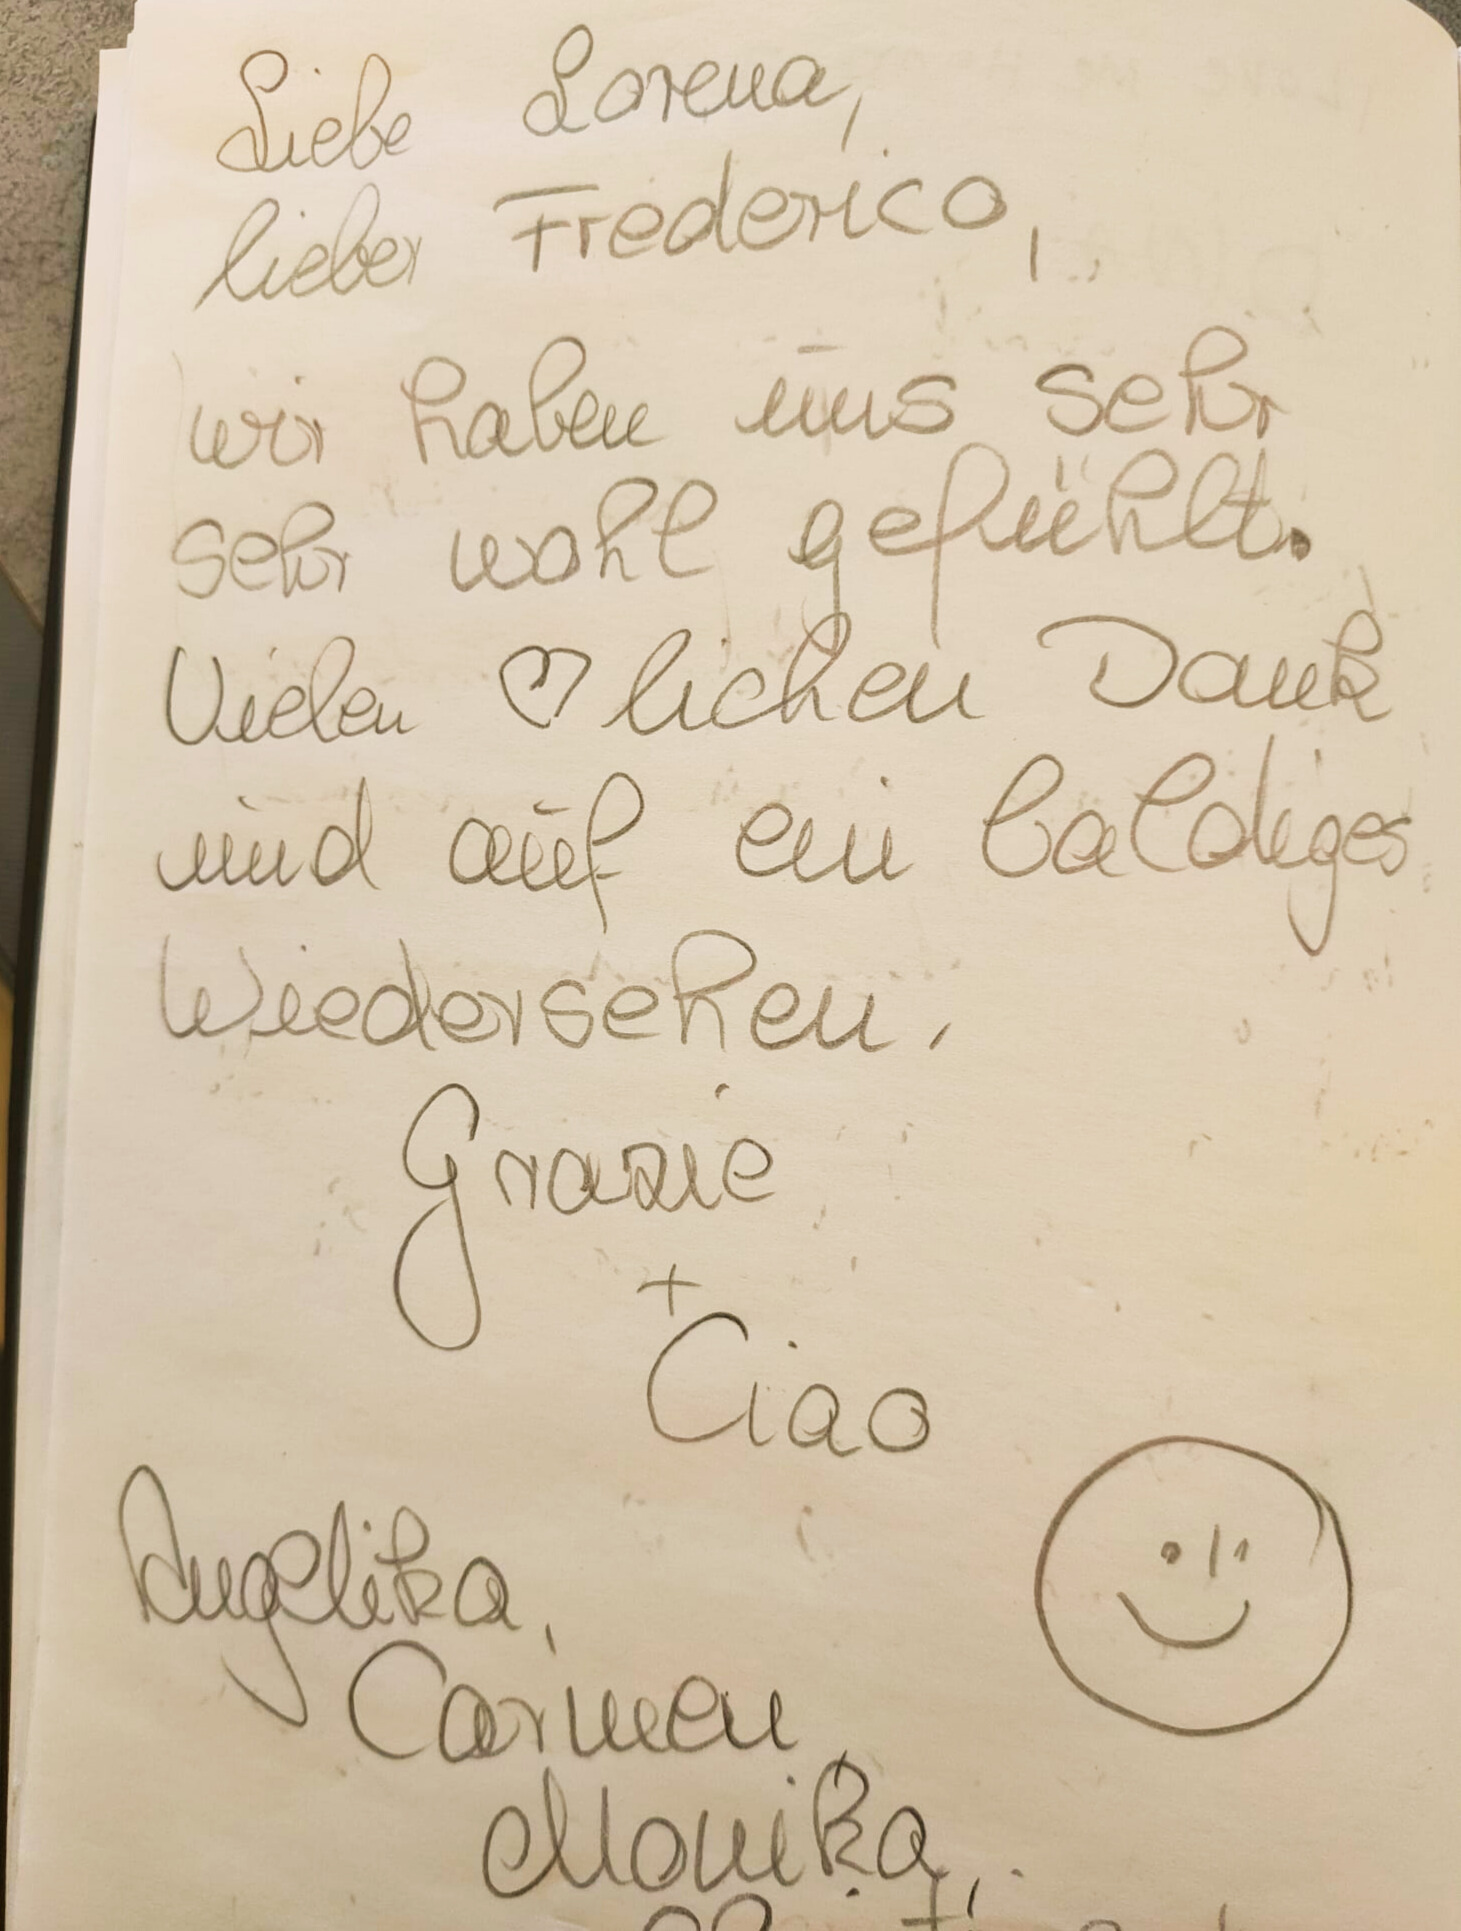 Liebe Lorena,
lieber Frederico,
wir haben uns sehr
sehr wohl gefühlt.
Vielen ♡lichen Dank
und auf ein baldiges
Wiedersehen.
Grazie
+
Ciao
Angelika,
Carmen,
Monika,